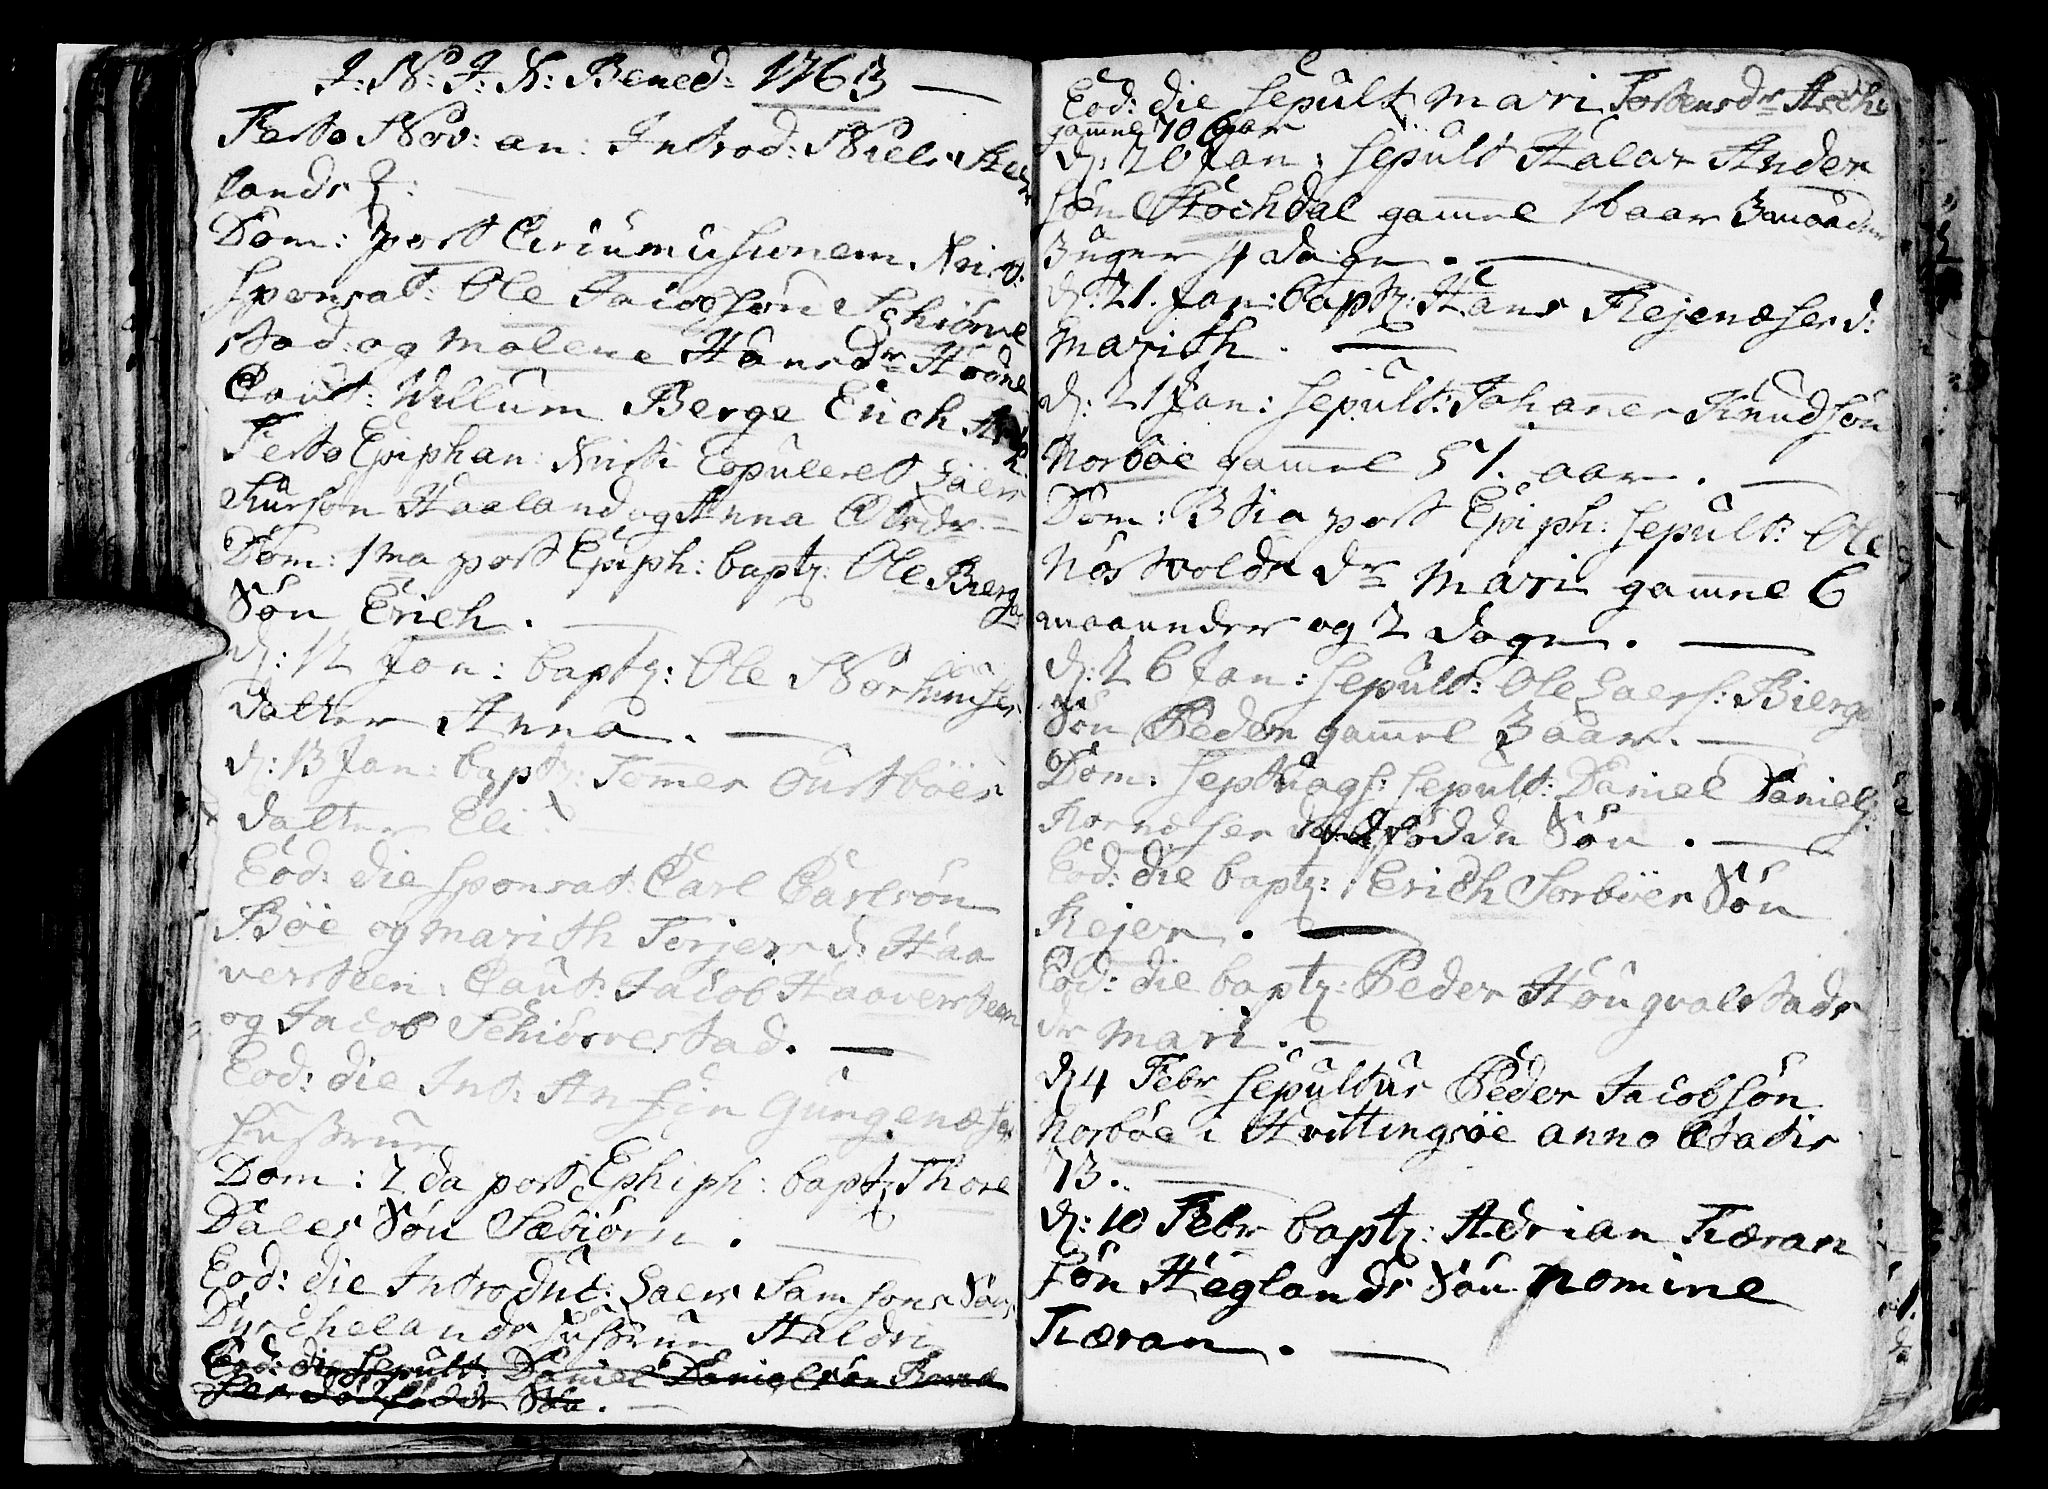 J: N: J: N: Bened: 1763
Festo Nov: an: Introd: Niels
lands
Dom: post Circumcisionem
Sponsat: Ole Jacobsøn Schiørve
stad og Malene Hansdr
Caut: Willum Berge Erich
Festo Epiphan: Kristi Copuleret Saer
Haaland og Anna Olsdr
Dom: 1ma post Epiph: bapt: Ole Bierge
Søn Erich.
d: 12 Jan: bapt: Ole
datter Anna.
d: 13 Jan: bapt: Tømes Oustbøes
datter Eli
Eod: die sponsat: Carl Carlsøn
Bøe og Marith Torjers d: Haa
versteen: Caut: Jacob Haaversteen
og Jacob Schiørvestad.
Eod: die Int:
Hustrue
Dom: 2da post Ephiph: bapt: Thore
Dales Søn Sæbiørn.
Eod: die Introdut: Saer Samsons
Hustrue
Eod: die sepult: Daniel Danielsøn
dødfødde Søn.
Eod: die sepult Mari Tostensdr
gamel 70 aar
d: 20 Jan: sepult Halar Ander
søn gamel 16 aar 3 maader
3 uger 4 dage.
d: 21. Jan: bapt: Hans d:
Marith.
d: 21 Jan: sepult: Johanes Knudsøn
Norbøe gamel 51. aar.
Dom: 3tia post Epiph: sepult: Ole
Nøstvolds dr Mari gamel 6
maaneder og 2 dage.
d: 26 Jan: sepult: Ole Saers: Bierge
Søn Peder gamel 3 aar.
Dom: Septuags: sepult: Daniel Daniels:
dødfødde Søn.
Eod: die bapt: Erich Sorbøes Søn
Rejer.
Eod: die bapt: Peder Hougvalstads
dr Mari.
d: 4 Febr sepultus Peder Jacobsøn
Norbøe i Hvittingsøe anno etatis
73.
d: 10 Febr bapt: Adrian Tiæran
søn Høglands Søn nomine
Tiæran.